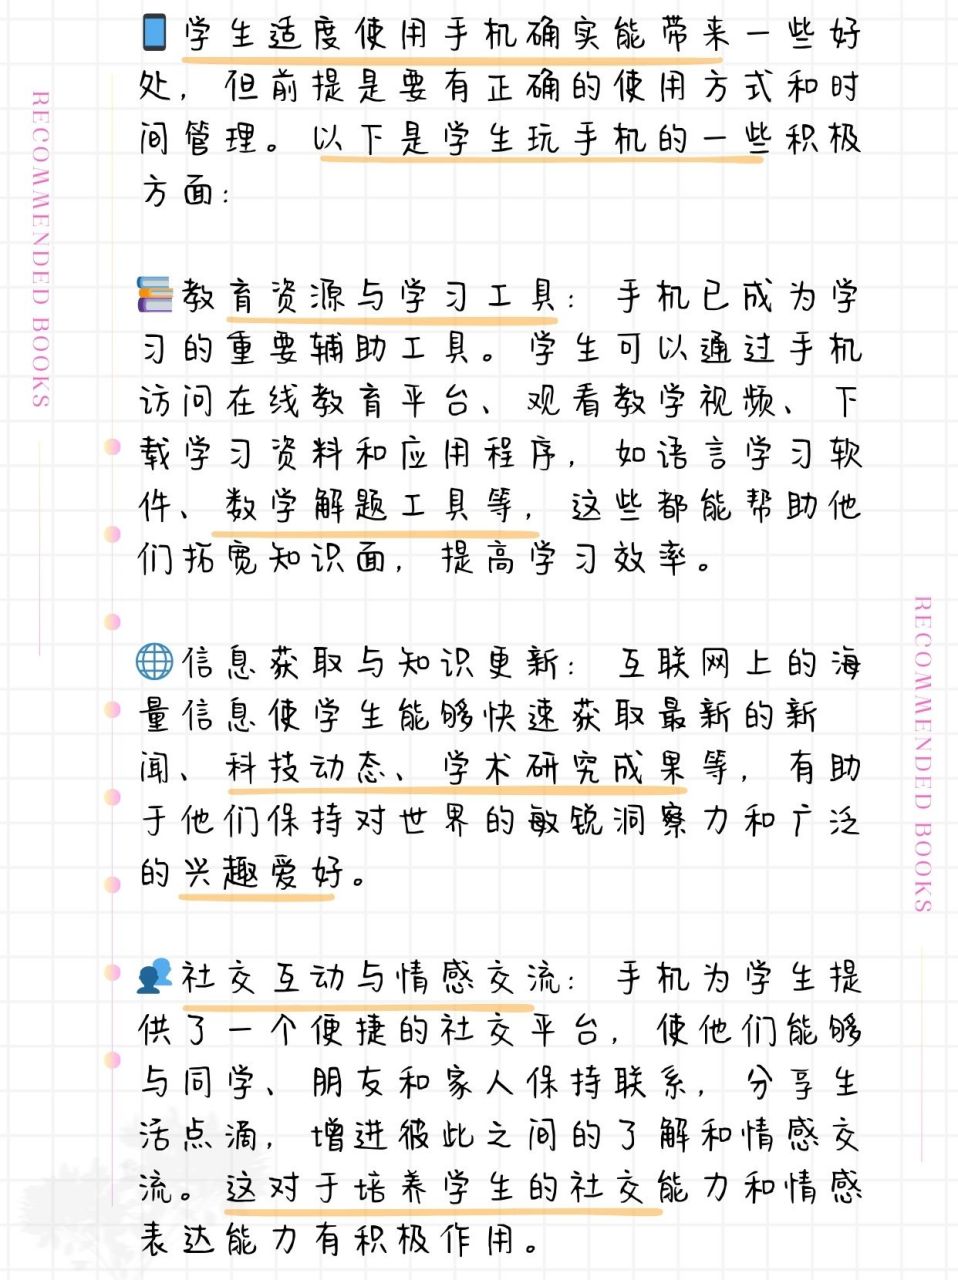 学生适度使用手机确实能带来一些好
处，但前提是要有正确的使用方式和时
间管理。以下是学生玩手机的一些积极
方面：
教育资源与学习工具：手机已成为学
习的重要辅助工具。学生可以通过手机
访问在线教育平台、观看教学视频、下
载学习资料和应用程序，如语言学习软
件、数学解题工具等，这些都能帮助他
们拓宽知识面，提高学习效率。
信息获取与知识更新：互联网上的海
量信息使学生能够快速获取最新的新
闻、科技动态、学术研究成果等，有助
于他们保持对世界的敏锐洞察力和广泛
的兴趣爱好。
社交互动与情感交流：手机为学生提
供了一个便捷的社交平台，使他们能够
与同学、朋友和家人保持联系，分享生
活点滴，增进彼此之间的了解和情感交
流。这对于培养学生的社交能力和情感
表达能力有积极作用。
RECOMMENDED BOOKS
RECOMMENDED BOOKS